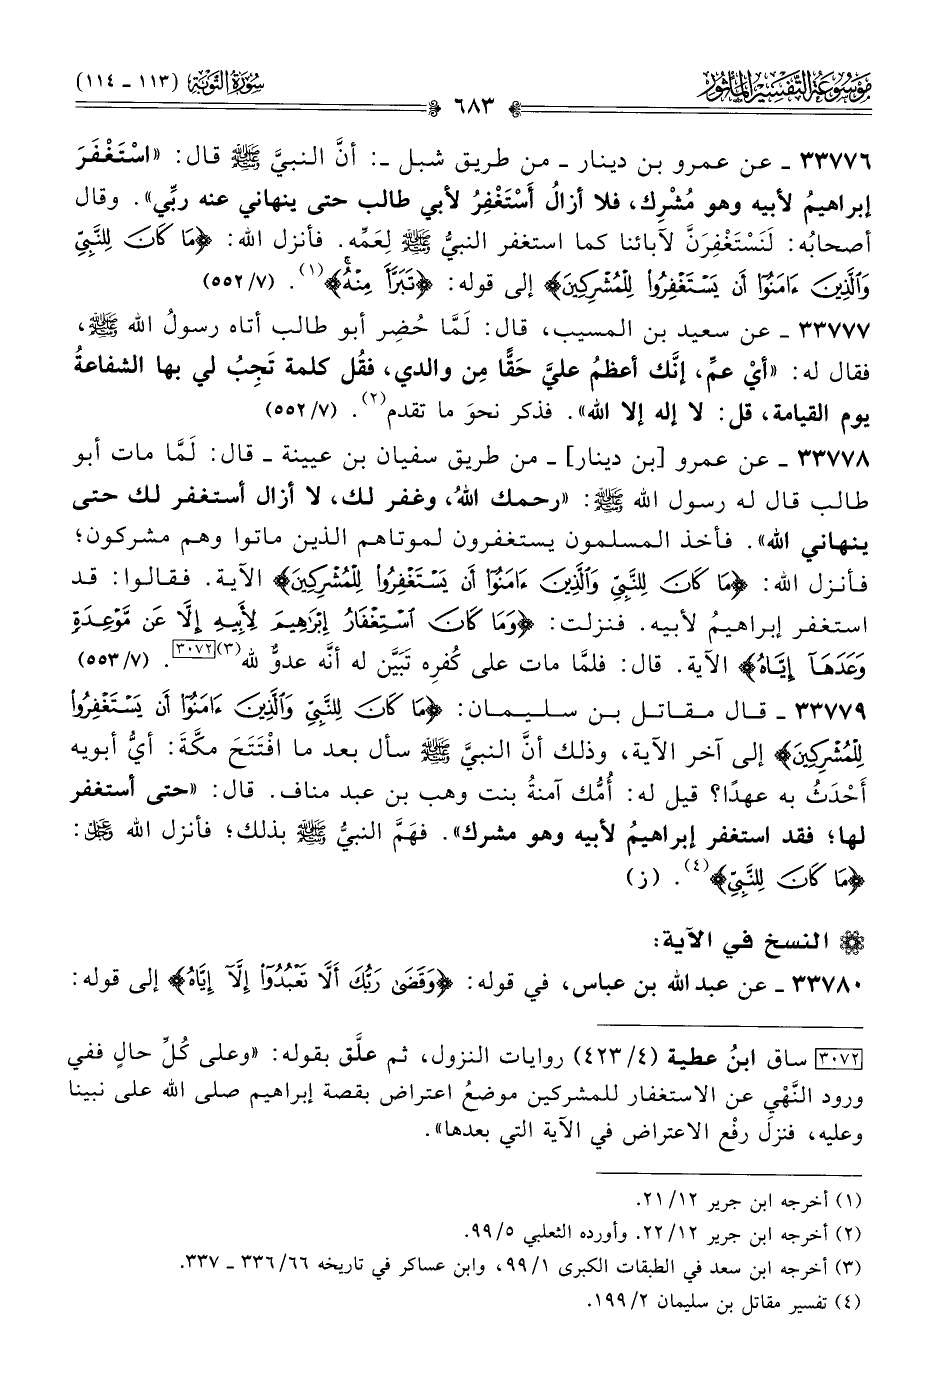 موسوعة التفسير المأثور
سورة التوبة (١١٣ - ١١٤)
٦٨٣
٣٣٧٧٦ ـ عن عمرو بن دينار ـ من طريق شبل ـ: أنَّ النبيَّ ﷺ قال: «اسْتَغْفَرَ
إبراهيمُ لأبيه وهو مُشْرِك، فلا أزالُ أَسْتَغْفِرُ لأبي طالب حتى ينهاني عنه ربِّي». وقال
أصحابُه: لَنَسْتَغْفِرَنَّ لآبائنا كما استغفر النبيُّ ﷺ لِعَمِّه. فأنزل الله: ﴿مَا كَانَ لِلنَّبِيِّ
وَالَّذِينَ ءَامَنُوٓا۟ أَن يَسْتَغْفِرُوا۟ لِلْمُشْرِكِينَ﴾ إلى قوله: ﴿تَبَرَّأَ مِنْهُۚ﴾(١). (٧/ ٥٥٢)
٣٣٧٧٧ ـ عن سعيد بن المسيب، قال: لَمَّا حُضِر أبو طالب أتاه رسولُ الله ﷺ،
فقال له: «أيْ عمِّ، إنَّك أعظمُ عليَّ حَقًّا مِن والدي، فقُل كلمة تَجِبُ لي بها الشفاعةُ
يوم القيامة، قل: لا إله إلا الله». فذكر نحوَ ما تقدم(٢). (٧/ ٥٥٢)
٣٣٧٧٨ ـ عن عمرو [بن دينار] ـ من طريق سفيان بن عيينة ـ قال: لَمَّا مات أبو
طالب قال له رسول الله ﷺ: «رحمك اللهُ، وغفر لك، لا أزال أستغفر لك حتى
ينهاني الله». فأخذ المسلمون يستغفرون لموتاهم الذين ماتوا وهم مشركون؛
فأنزل الله: ﴿مَا كَانَ لِلنَّبِيِّ وَالَّذِينَ ءَامَنُوٓا۟ أَن يَسْتَغْفِرُوا۟ لِلْمُشْرِكِينَ﴾ الآية. فقالوا: قد
استغفر إبراهيمُ لأبيه. فنزلت: ﴿وَمَا كَانَ ٱسْتِغْفَارُ إِبْرَٰهِيمَ لِأَبِيهِ إِلَّا عَن مَّوْعِدَةٍ
وَعَدَهَآ إِيَّاهُ﴾ الآية. قال: فلمَّا مات على كُفرِه تَبَيَّن له أنَّه عدوٌّ لله(٣)[٣٠٧٢]. (٧/ ٥٥٣)
٣٣٧٧٩ ـ قال مقاتل بن سليمان: ﴿مَا كَانَ لِلنَّبِيِّ وَالَّذِينَ ءَامَنُوٓا۟ أَن يَسْتَغْفِرُوا۟
لِلْمُشْرِكِينَ﴾ إلى آخر الآية، وذلك أنَّ النبيَّ ﷺ سأل بعد ما افْتَتَحَ مكَّةَ: أيُّ أبويه
أَحْدَثُ به عهدًا؟ قيل له: أُمُّك آمنةُ بنت وهب بن عبد مناف. قال: «حتى أستغفر
لها؛ فقد استغفر إبراهيمُ لأبيه وهو مشرك». فهَمَّ النبيُّ ﷺ بذلك؛ فأنزل الله ﷿:
﴿مَا كَانَ لِلنَّبِيِّ﴾(٤). (ز)
النسخ في الآية:
٣٣٧٨٠ ـ عن عبد الله بن عباس، في قوله: ﴿وَقَضَىٰ رَبُّكَ أَلَّا تَعْبُدُوٓا۟ إِلَّآ إِيَّاهُ﴾ إلى قوله:
[٣٠٧٢] ساق ابنُ عطية (٤/ ٤٢٣) روايات النزول، ثم علَّق بقوله: «وعلى كُلِّ حالٍ ففي
ورود النَّهْيِ عن الاستغفار للمشركين موضعُ اعتراض بقصة إبراهيم صلى الله على نبينا
وعليه، فنزلَ رفْع الاعتراض في الآية التي بعدها».
(١) أخرجه ابن جرير ١٢/ ٢١.
(٢) أخرجه ابن جرير ١٢/ ٢٢. وأورده الثعلبي ٥/ ٩٩.
(٣) أخرجه ابن سعد في الطبقات الكبرى ١/ ٩٩، وابن عساكر في تاريخه ٦٦/ ٣٣٦ ـ ٣٣٧.
(٤) تفسير مقاتل بن سليمان ٢/ ١٩٩.